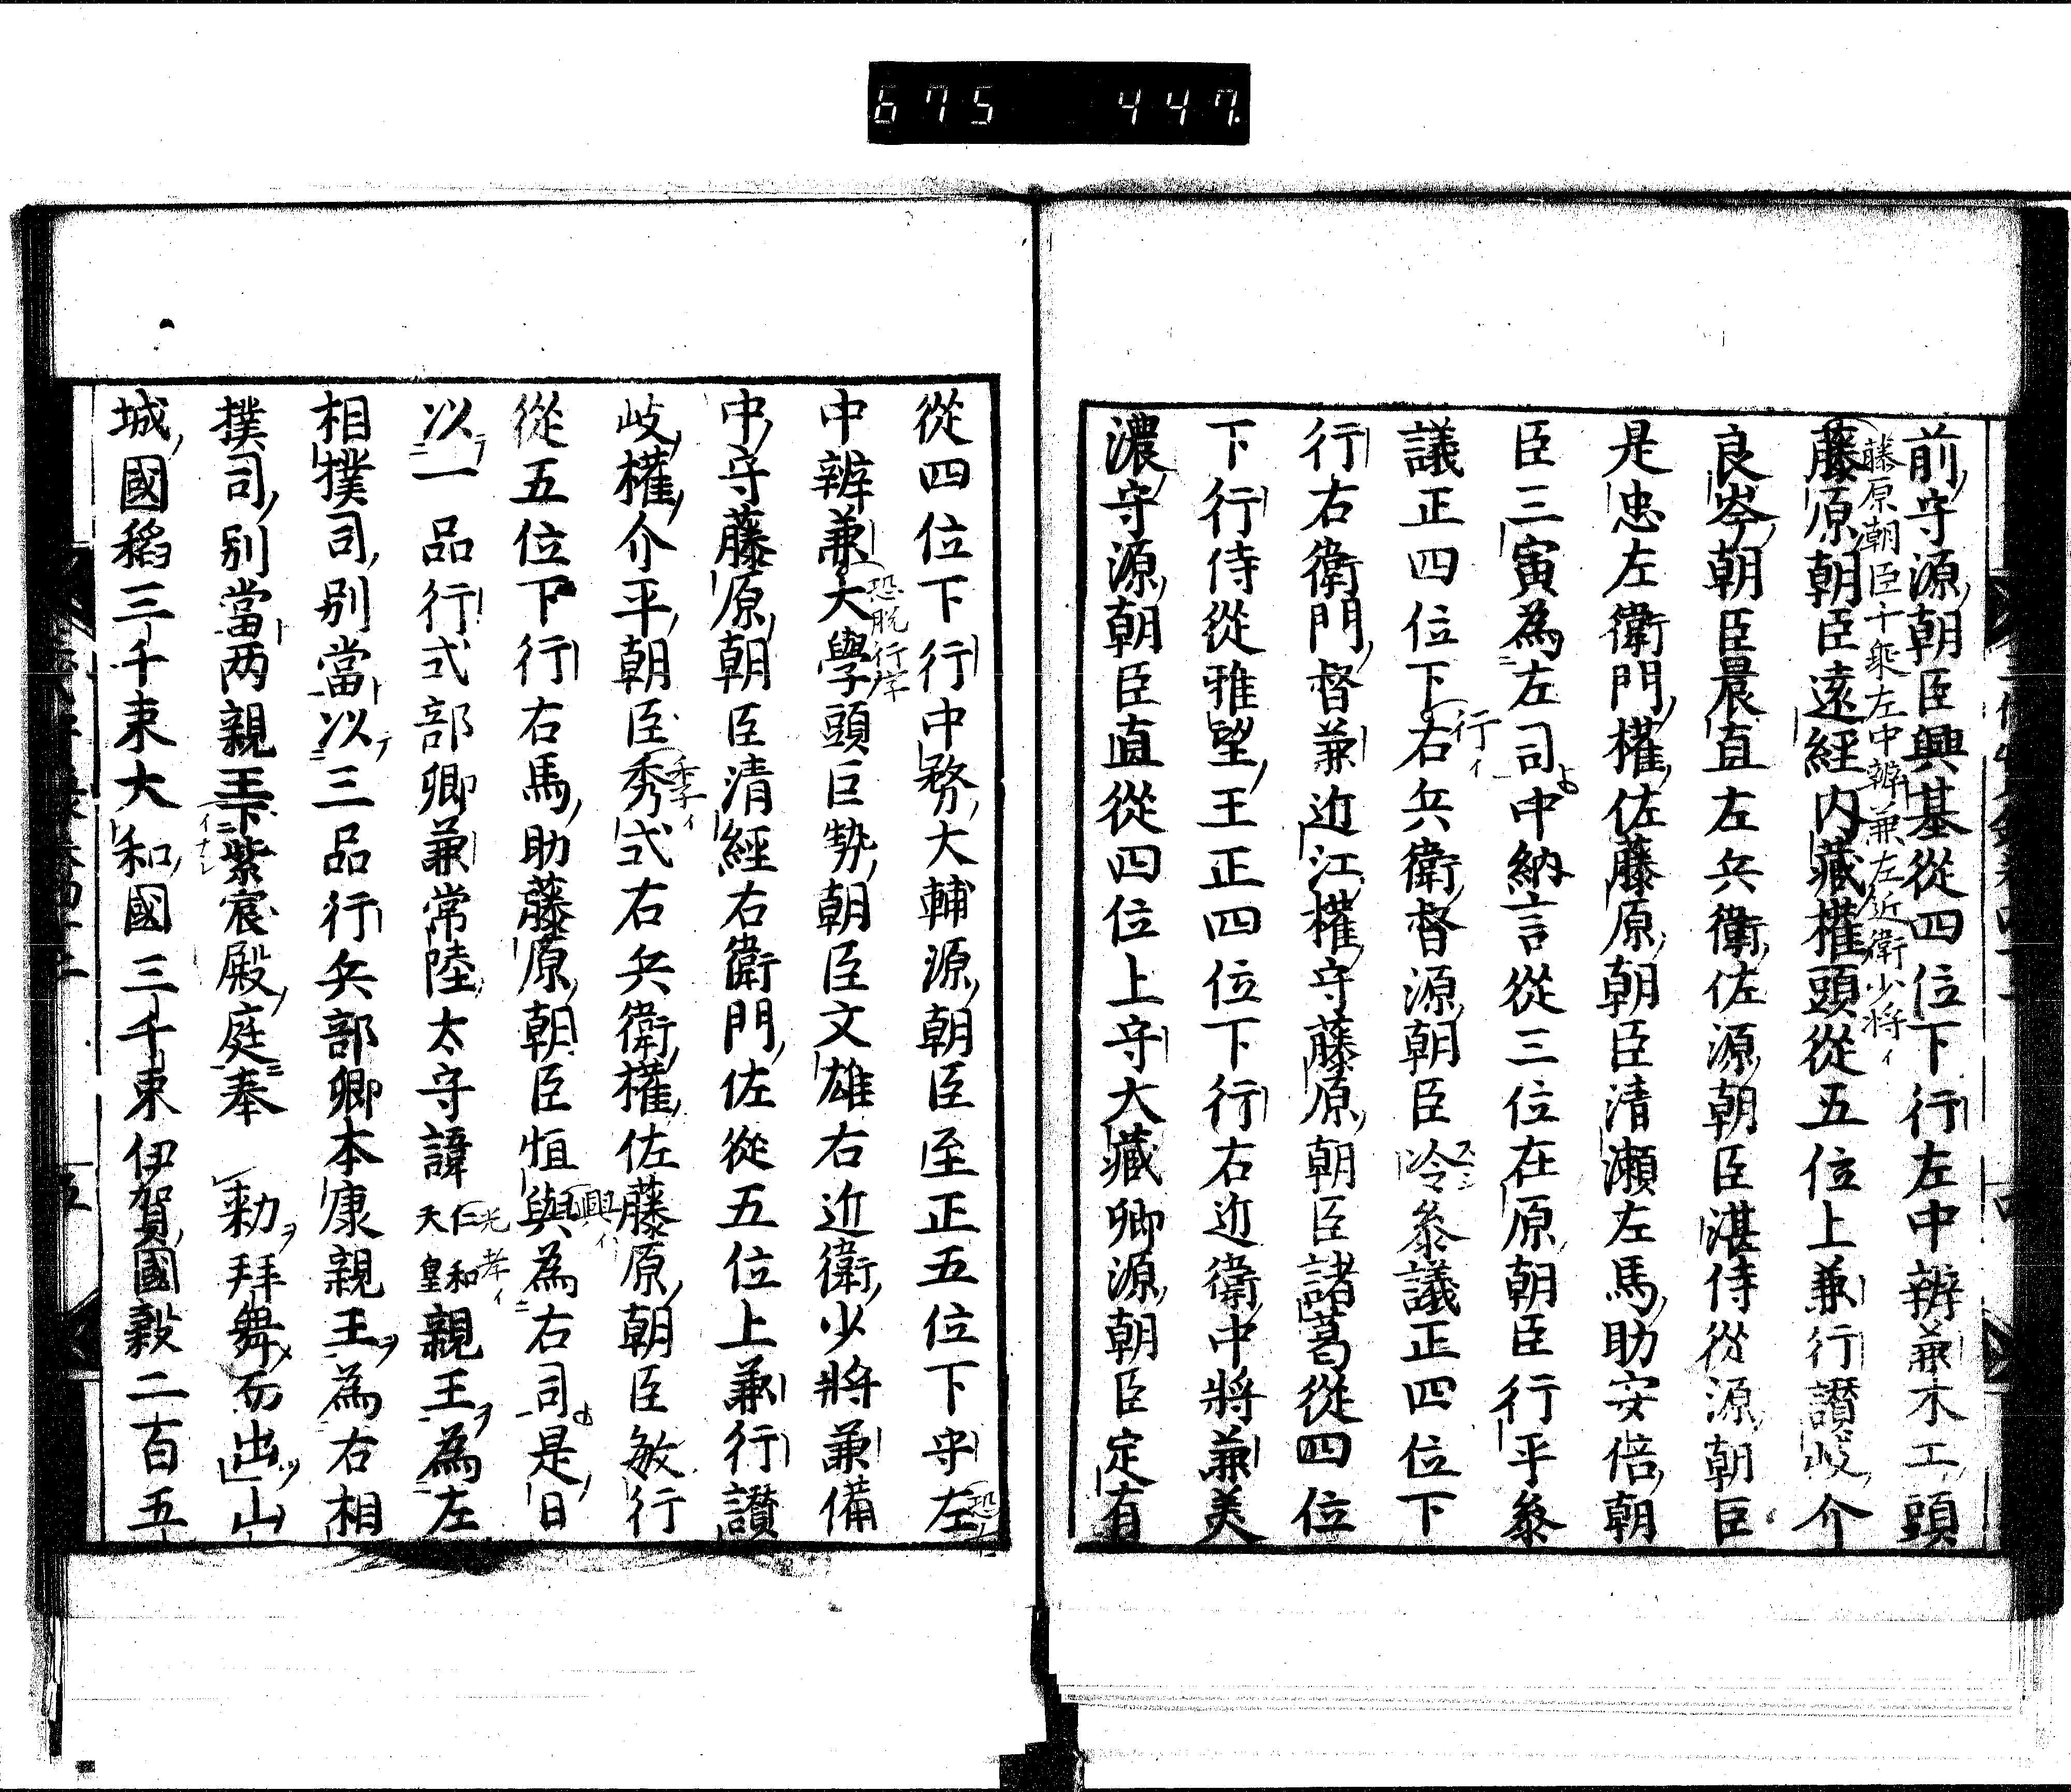 675 447
前守源朝臣興基從四位下行左中辨兼木工頭
藤原朝臣千乘左中辨兼左近衛少将イ
藤原朝臣遠經内藏權頭從五位上兼行讃岐介
良岑朝臣晨直左兵衛佐源朝臣湛侍從源朝臣
是忠左衛門權佐藤原朝臣清瀬左馬助安倍朝
臣三寅為左司中納言從三位在原朝臣行平參
議正四位下右兵衛督源朝臣冷參議正四位下
行イ
行右衛門督兼近江權守藤原朝臣諸葛從四位
下行侍從雅望王正四位下行右近衛中將兼美
濃守源朝臣直從四位上守大藏卿源朝臣定有
從四位下行中務大輔源朝臣至正五位下守左
中辨兼大學頭巨勢朝臣文雄右近衛少將兼備
恐脱行字
中守藤原朝臣清經右衛門佐從五位上兼行讃
岐權介平朝臣秀式右兵衛權佐藤原朝臣敏行
季イ
從五位下行右馬助藤原朝臣恒與為右司是日
興イ
以一品行式部卿兼常陸太守諱仁和天皇親王為左
光孝イ
相撲司別當以三品行兵部卿本康親王為右相
撲司別當両親王下紫宸殿庭奉 勅拜舞而出山
イナシ
城國稻三千束大和國三千束伊賀國穀二百五